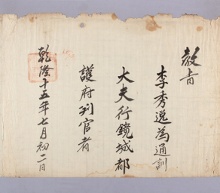 教旨
李秀逸為通訓
大夫行鏡城都
護府判官者
乾隆十五年七月初二日